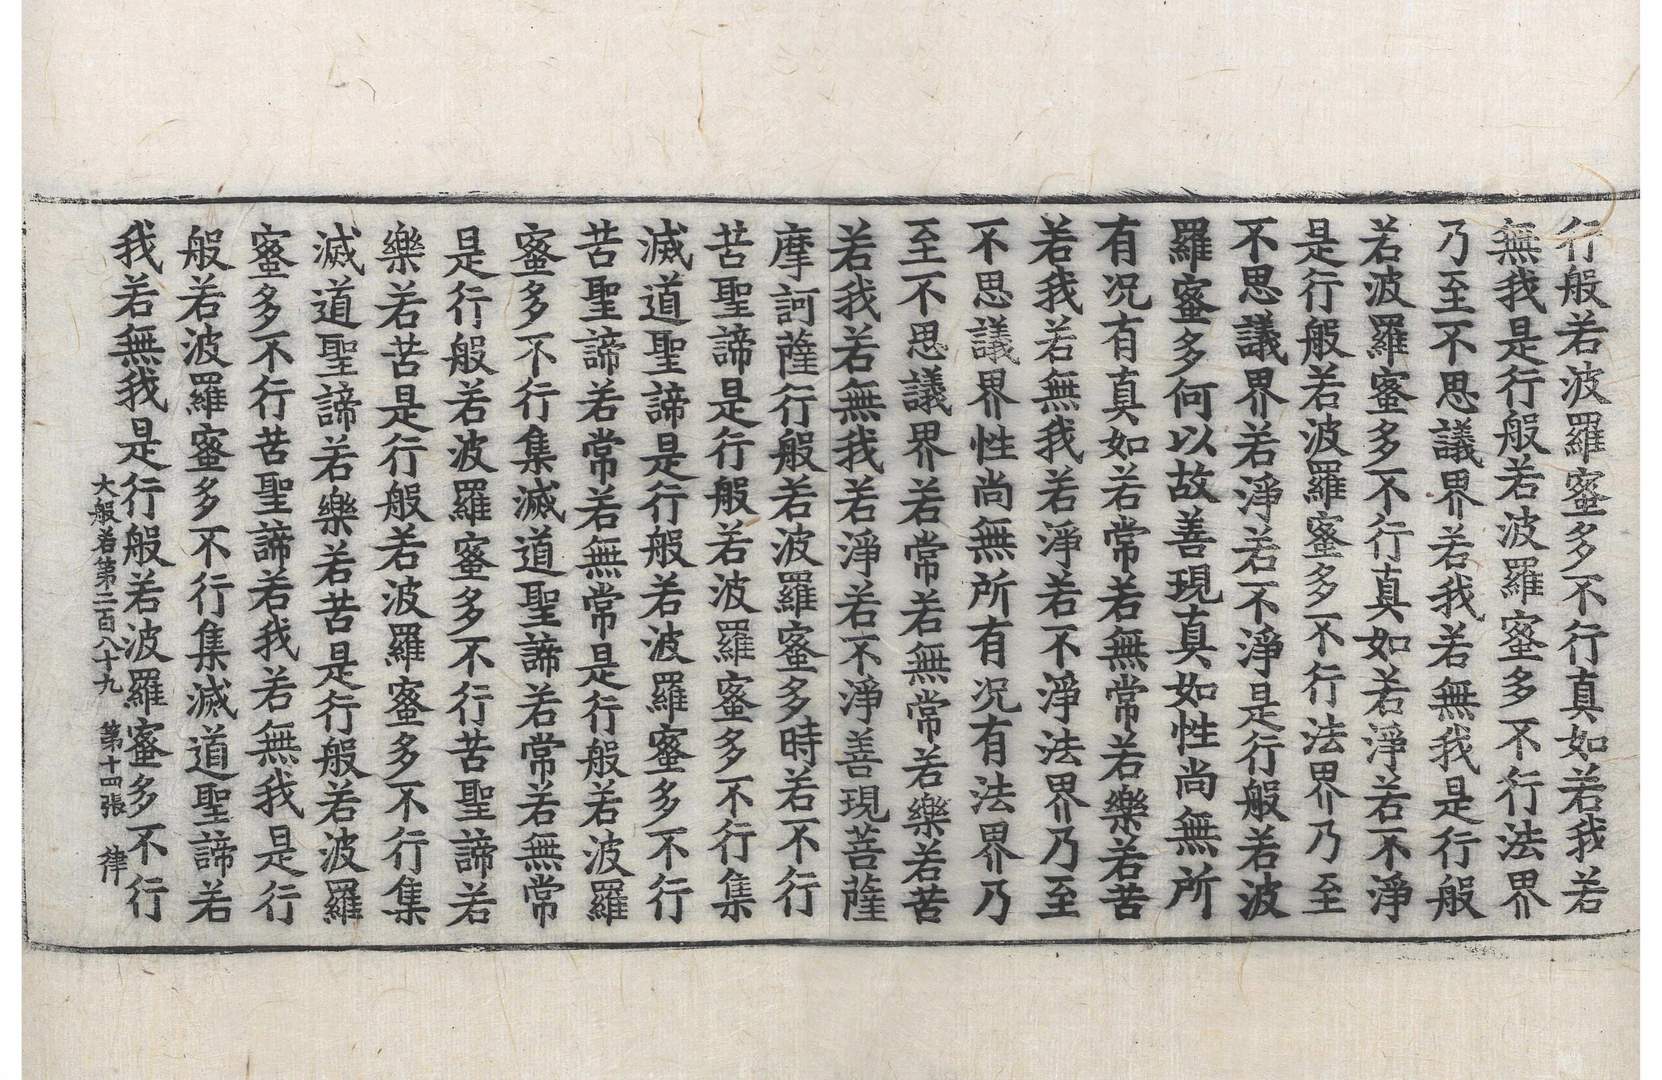 行般若波羅蜜多不行真如若我若
無我是行般若波羅蜜多不行法界
乃至不思議界若我若無我是行般
若波羅蜜多不行真如若淨若不淨
是行般若波羅蜜多不行法界乃至
不思議界若淨若不淨是行般若波
羅蜜多何以故善現真如性尚無所
有況有真如若常若無常若樂若苦
若我若無我若淨若不淨法界乃至
不思議界性尚無所有況有法界乃
至不思議界若常若無常若樂若苦
若我若無我若淨若不淨善現菩薩
摩訶薩行般若波羅蜜多時若不行
苦聖諦是行般若波羅蜜多不行集
滅道聖諦是行般若波羅蜜多不行
苦聖諦若常若無常是行般若波羅
蜜多不行集滅道聖諦若常若無常
是行般若波羅蜜多不行苦聖諦若
樂若苦是行般若波羅蜜多不行集
滅道聖諦若樂若苦是行般若波羅
蜜多不行苦聖諦若我若無我是行
般若波羅蜜多不行集滅道聖諦若
我若無我是行般若波羅蜜多不行
大般若第二百八十九 第十四張 律